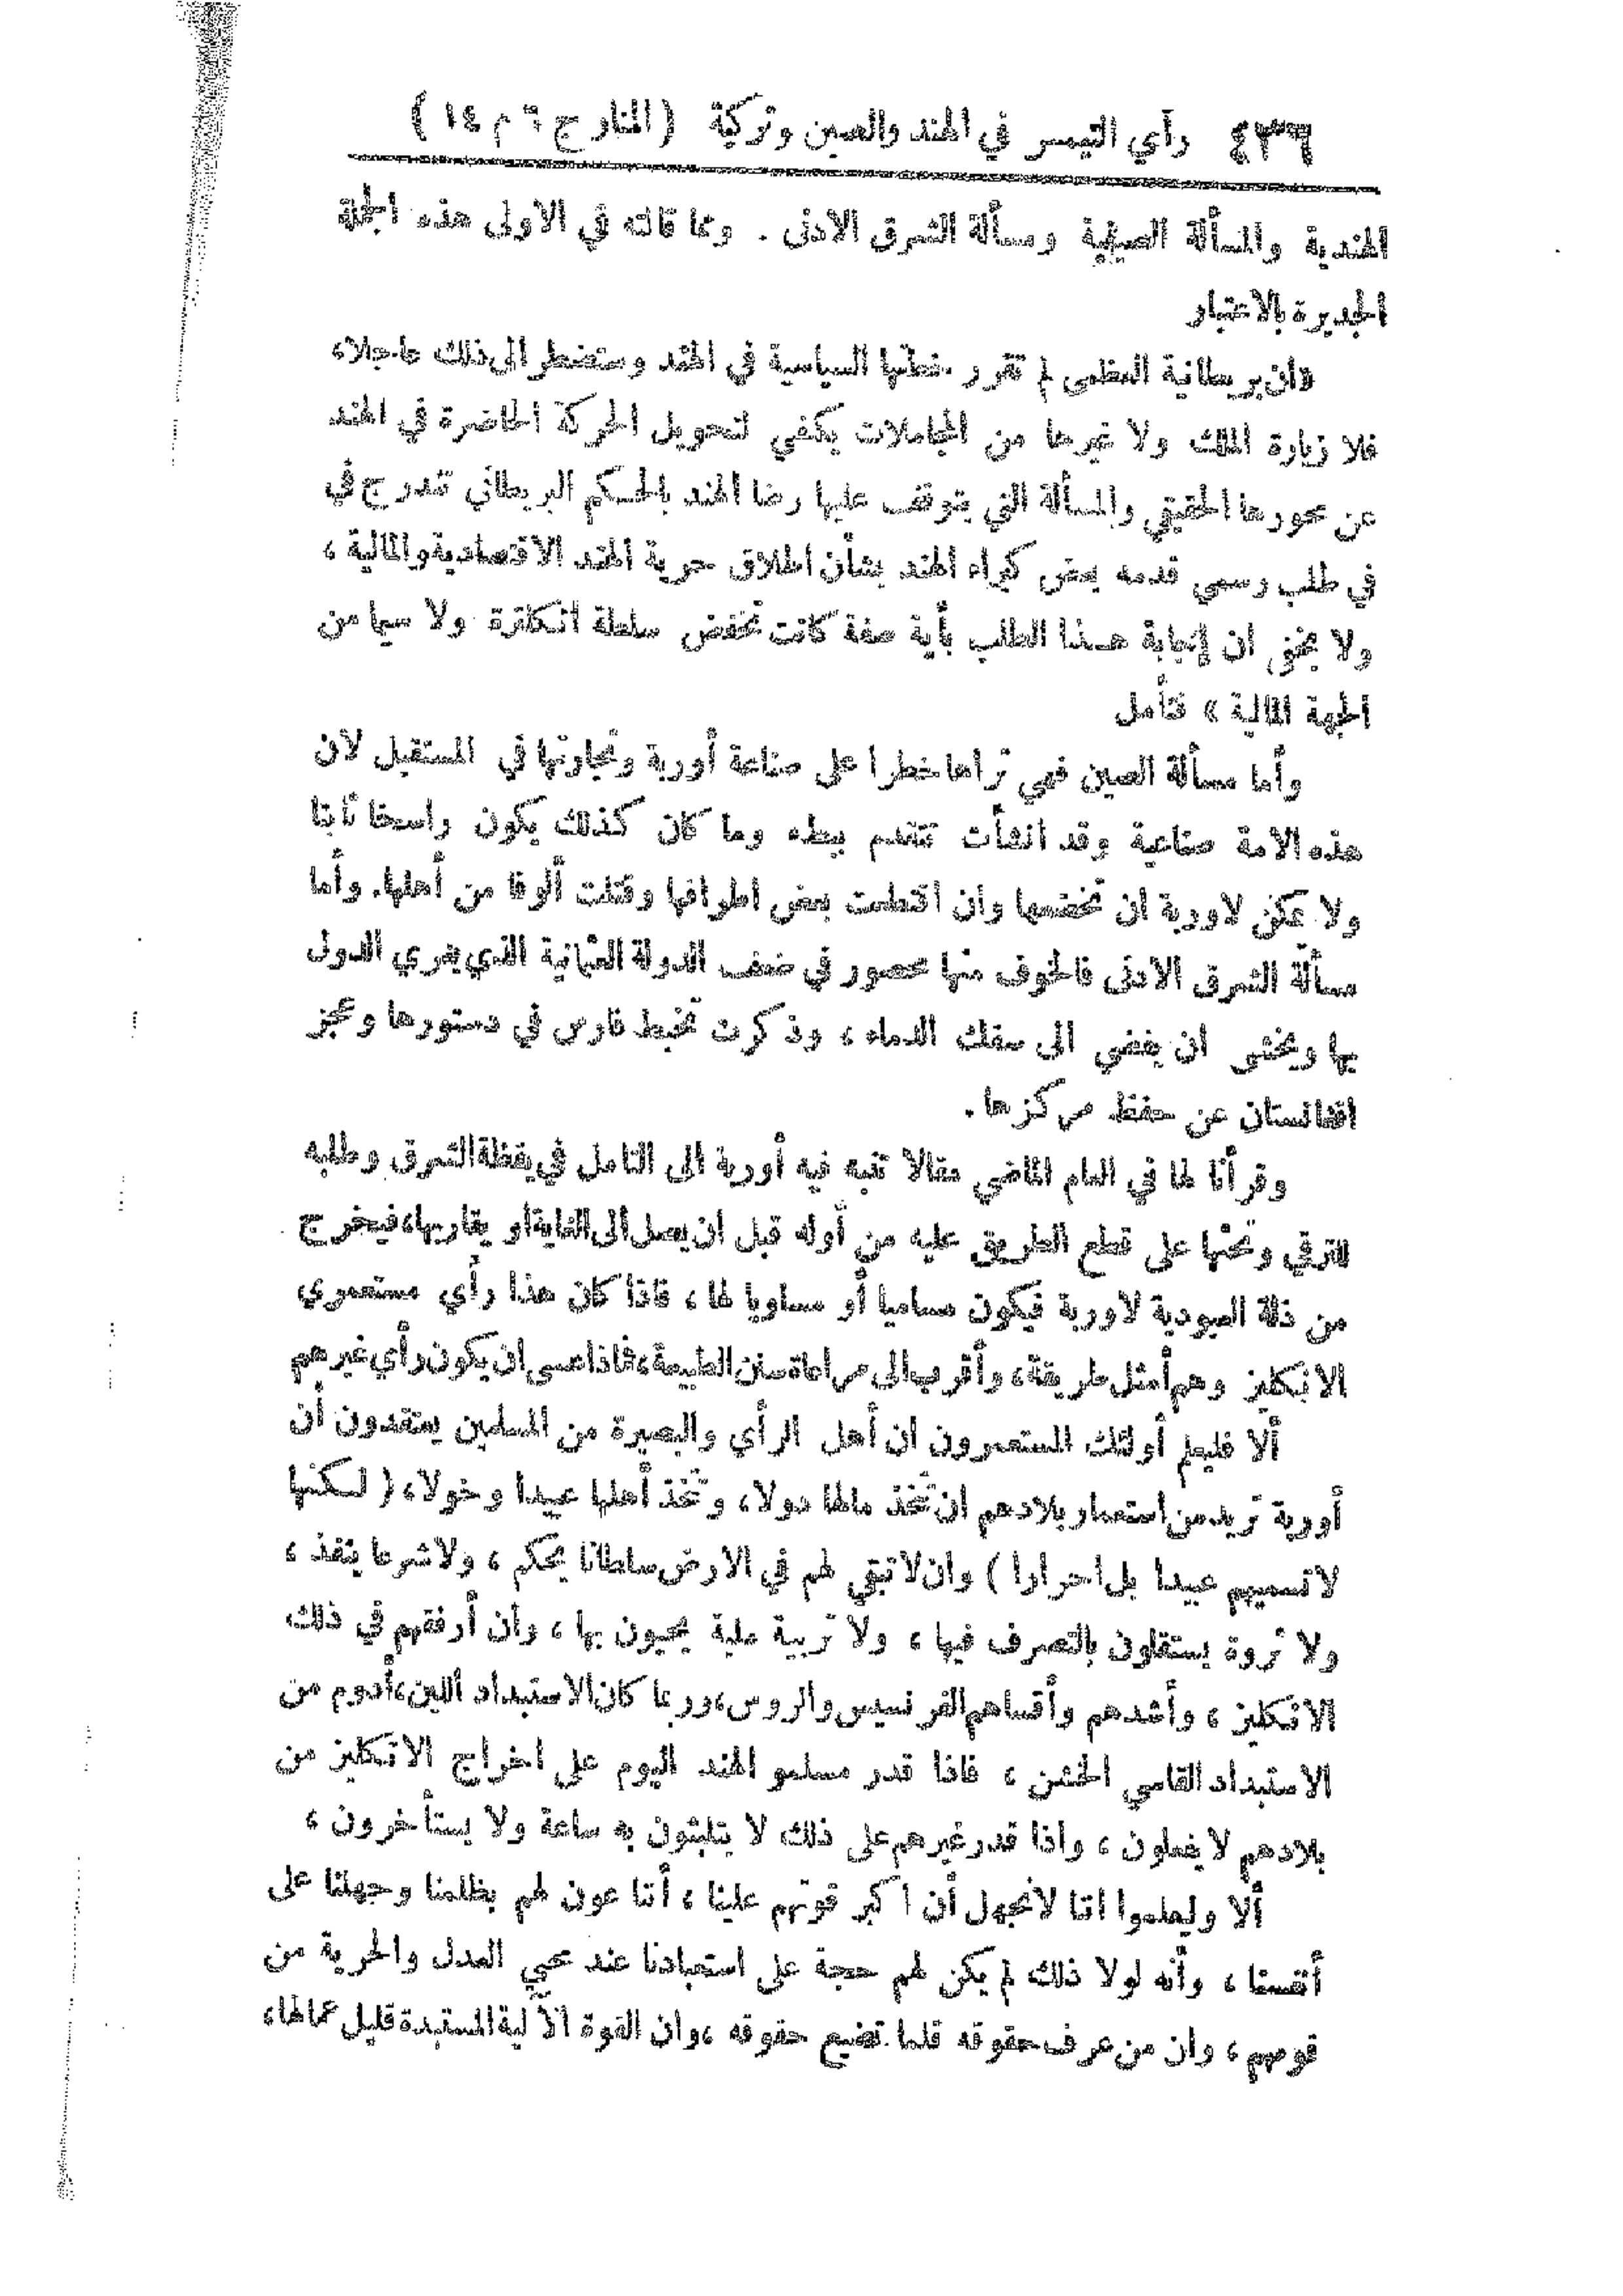 ٤٣٦ رأي التيمس في الهند والصين وتركية (المنار ج ٦ م ١٤)
الهندية والمسألة الصينية ومسألة الشرق الادنى . ومما قالته في الاولى هذه الجملة
الجديرة بالاعتبار
«ان بريطانية العظمى لم تقرر خطتها السياسية في الهند وستضطر الى ذلك عاجلا،
فلا زيارة الملك ولا غيرها من المجاملات يكفي لتحويل الحركة الحاضرة في الهند
عن محورها الحقيقي والمسألة التي يتوقف عليها رضا الهند بالحكم البريطاني تندرج في
في طلب رسمي قدمه بعض كبراء الهند بشأن اطلاق حرية الهند الاقتصادية والمالية ،
ولا يخفى ان إجابة هذا الطلب بأية صفة كانت تخفض سلطة انكلترة ولا سيما من
الجهة المالية » فتأمل
وأما مسألة الصين فهي تراها خطرا على صناعة أوربة وتجارتها في المستقبل لأن
هذه الامة صناعية وقد انشأت تتقدم ببطء وما كان كذلك يكون راسخا ثابتا
ولا يمكن لاوربة ان تخضعها وان اقتطعت بعض اطرافها وقتلت ألوفا من أهلها. وأما
مسألة الشرق الادنى فالخوف منها محصور في ضعف الدولة العثمانية الذي يغري الدول
بها ويخشى ان يفضي الى سفك الدماء ، وذكرت تخبط فارس في دستورها وعجز
افغانستان عن حفظ مركزها .
وقرأنا لها في العام الماضي مقالا تنبه فيه أوربة الى التأمل في يقظة الشرق وطلبه
للترقي وتحثها على قطع الطريق عليه من أوله قبل ان يصل الى الغاية او يقاربها، فيخرج
من ذلة العبودية لاوربة فيكون مساميا أو مساويا لها ، فاذا كان هذا رأي مستعمري
الانكليز وهم أمثل طريقة، وأقرب الى مراعاة سنن الطبيعة، فماذا عسى ان يكون رأي غيرهم
ألا فليعلم أولئك المستعمرون ان أهل الرأي والبصيرة من المسلمين يعتقدون أن
أوربة تريد من استعمار بلادهم ان تتخذ مالها دولا، وتتخذ أهلها عبيدا وخولا، ( لكنها
لا تسميهم عبيدا بل احرارا ) وان لا تبقي لهم في الارض سلطانا يحكم ، ولا شرعا ينفذ ،
ولا ثروة يستقلون بالتصرف فيها ، ولا تربية ملية يحيون بها ، وأن أرفقهم في ذلك
الانكليز ، وأشدهم وأقساهم الفرنسيس والروس، وربما كان الاستبداد اللين، أدوم من
الاستبداد القاسي الخشن ، فاذا قدر مسلمو الهند اليوم على اخراج الانكليز من
بلادهم لا يفعلون ، واذا قدر غيرهم على ذلك لا يتلبثون به ساعة ولا يستأخرون ،
ألا وليعلموا اننا لا نجهل أن أكبر قوتهم علينا ، أننا عون لهم بظلمنا وجهلنا على
أنفسنا ، وأنه لولا ذلك لم يكن لهم حجة على استعبادنا عند محبي العدل والحرية من
قومهم ، وان من عرف حقوقه قلما تضيع حقوقه ، وان القوة الآلية المستبدة قليل عمالها،